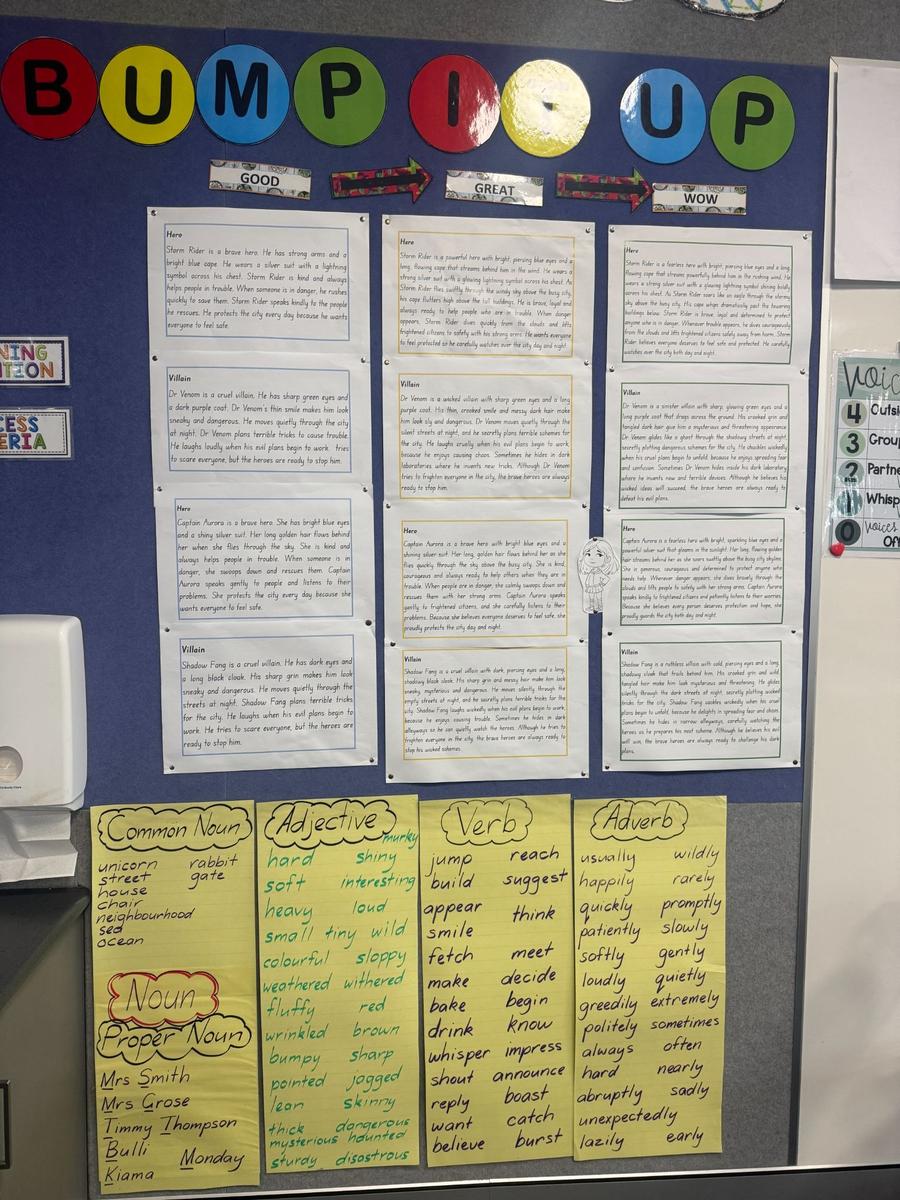 BUMP IT UP
GOOD
GREAT
WOW
Hero
Storm Rider is a brave hero. He has strong arms and a
bright blue cape. He wears a silver suit with a lightning
symbol across his chest. Storm Rider is kind and always
helps people in trouble. When someone is in danger, he rushes
quickly to save them. Storm Rider speaks kindly to the people
he rescues. He protects the city every day because he wants
everyone to feel safe.
Villain
Dr Venom is a cruel villain. He has sharp green eyes and
a dark purple coat. Dr Venom's thin smile makes him look
sneaky and dangerous. He moves quietly through the city
at night. Dr Venom plans terrible tricks to cause trouble.
He laughs loudly when his evil plans begin to work. tries
to scare everyone, but the heroes are ready to stop him.
Hero
Captain Aurora is a brave hero. She has bright blue eyes
and a shiny silver suit. Her long golden hair flows behind
her when she flies through the sky. She is kind and
always helps people in trouble. When someone is in
danger, she swoops down and rescues them. Captain
Aurora speaks gently to people and listens to their
problems. She protects the city every day because she
wants everyone to feel safe.
Villain
Shadow Fang is a cruel villain. He has dark eyes and
a long black cloak. His sharp grin makes him look
sneaky and dangerous. He moves quietly through the
streets at night. Shadow Fang plans terrible tricks
for the city. He laughs when his evil plans begin to
work. He tries to scare everyone, but the heroes are
ready to stop him.
Hero
Storm Rider is a powerful hero with bright, piercing blue eyes and a
long, flowing cape that streams behind him in the wind. He wears a
strong silver suit with a glowing lightning symbol across his chest. As
Storm Rider flies swiftly through the windy sky above the busy city,
his cape flutters high above the tall buildings. He is brave, loyal and
always ready to help people who are in trouble. When danger
appears, Storm Rider dives quickly from the clouds and lifts
frightened citizens to safety with his strong arms. He wants everyone
to feel protected so he carefully watches over the city day and night.
Villain
Dr Venom is a wicked villain with sharp green eyes and a long
purple coat. His thin, crooked smile and messy dark hair make
him look sly and dangerous. Dr Venom moves quietly through the
silent streets at night, and he secretly plans terrible schemes for
the city. He laughs cruelly when his evil plans begin to work,
because he enjoys causing chaos. Sometimes he hides in dark
laboratories where he invents new tricks. Although Dr Venom
tries to frighten everyone in the city, the brave heroes are always
ready to stop him.
Hero
Captain Aurora is a brave hero with bright blue eyes and a
shining silver suit. Her long, golden hair flows behind her as she
flies quickly through the sky above the busy city. She is kind,
courageous and always ready to help others when they are in
trouble. When people are in danger, she calmly swoops down and
rescues them with her strong arms. Captain Aurora speaks
gently to frightened citizens, and she carefully listens to their
problems. Because she believes everyone deserves to feel safe, she
proudly protects the city day and night.
Villain
Shadow Fang is a cruel villain with dark, piercing eyes and a long,
shadowy black cloak. His sharp grin and messy hair make him look
sneaky, mysterious and dangerous. He moves silently through the
empty streets at night, and he secretly plans terrible tricks for the
city. Shadow Fang laughs wickedly when his evil plans begin to work,
because he enjoys causing trouble. Sometimes he hides in dark
alleyways so he can quietly watch the heroes. Although he tries to
frighten everyone in the city, the brave heroes are always ready to
stop his wicked schemes.
Hero
Storm Rider is a fearless hero with bright, piercing blue eyes and a long,
flowing cape that streams powerfully behind him in the rushing wind. He
wears a strong silver suit with a glowing lightning symbol shining boldly
across his chest. As Storm Rider soars like an eagle through the stormy
sky above the busy city, his cape whips dramatically past the towering
buildings below. Storm Rider is brave, loyal and determined to protect
anyone who is in danger. Whenever trouble appears, he dives courageously
from the clouds and lifts frightened citizens safely away from harm. Storm
Rider believes everyone deserves to feel safe and protected. He carefully
watches over the city day and night.
Villain
Dr Venom is a sinister villain with sharp, glowing green eyes and a
long purple coat that drags across the ground. His crooked grin and
tangled dark hair give him a mysterious and threatening appearance.
Dr Venom glides like a ghost through the shadowy streets at night,
secretly plotting dangerous schemes for the city. He chuckles wickedly
when his cruel plans begin to unfold, because he enjoys spreading fear
and confusion. Sometimes Dr Venom hides inside his dark laboratory
where he invents new and terrible devices. Although he believes his
wicked ideas will succeed, the brave heroes are always ready to
defeat his evil plans.
Hero
Captain Aurora is a fearless hero with bright, sparkling blue eyes and a
powerful silver suit that gleams in the sunlight. Her long, flowing golden
hair streams behind her as she soars swiftly above the busy city skyline.
She is generous, courageous and determined to protect anyone who
needs help. Whenever danger appears, she dives bravely through the
clouds and lifts people to safety with her strong arms. Captain Aurora
speaks kindly to frightened citizens and patiently listens to their worries.
Because she believes every person deserves protection and hope, she
proudly guards the city both day and night.
Villain
Shadow Fang is a ruthless villain with cold, piercing eyes and a long,
shadowy cloak that trails behind him. His crooked grin and wild,
tangled hair make him look mysterious and threatening. He glides
silently through the dark streets at night, secretly plotting wicked
schemes for the city. Shadow Fang cackles wickedly when his cruel
plans begin to unfold, because he delights in spreading fear and chaos.
Sometimes he hides in narrow alleyways, carefully watching the
heroes as he prepares his next scheme. Although he believes his evil
will win, the brave heroes are always ready to challenge his dark
plans.
NING
NTION
CESS
ERIA
Voic
4 Outsi
3 Group
2 Partne
1 Whisp
0 voices
Off
Common Noun
unicorn rabbit
street gate
house
chair
neighbourhood
sea
ocean
Noun
Proper Noun
Mrs Smith
Mrs Grose
Timmy Thompson
Bulli Monday
Kiama
Adjective
murky
hard shiny
soft interesting
heavy loud
small tiny wild
colourful sloppy
weathered withered
fluffy red
wrinkled brown
bumpy sharp
pointed jagged
lean skinny
thick dangerous
mysterious haunted
sturdy disastrous
Verb
jump reach
build suggest
appear think
smile
fetch meet
make decide
bake begin
drink know
whisper impress
shout announce
reply boast
want catch
believe burst
Adverb
usually wildly
happily rarely
quickly promptly
patiently slowly
softly gently
loudly quietly
greedily extremely
politely sometimes
always often
hard nearly
abruptly sadly
unexpectedly
lazily early